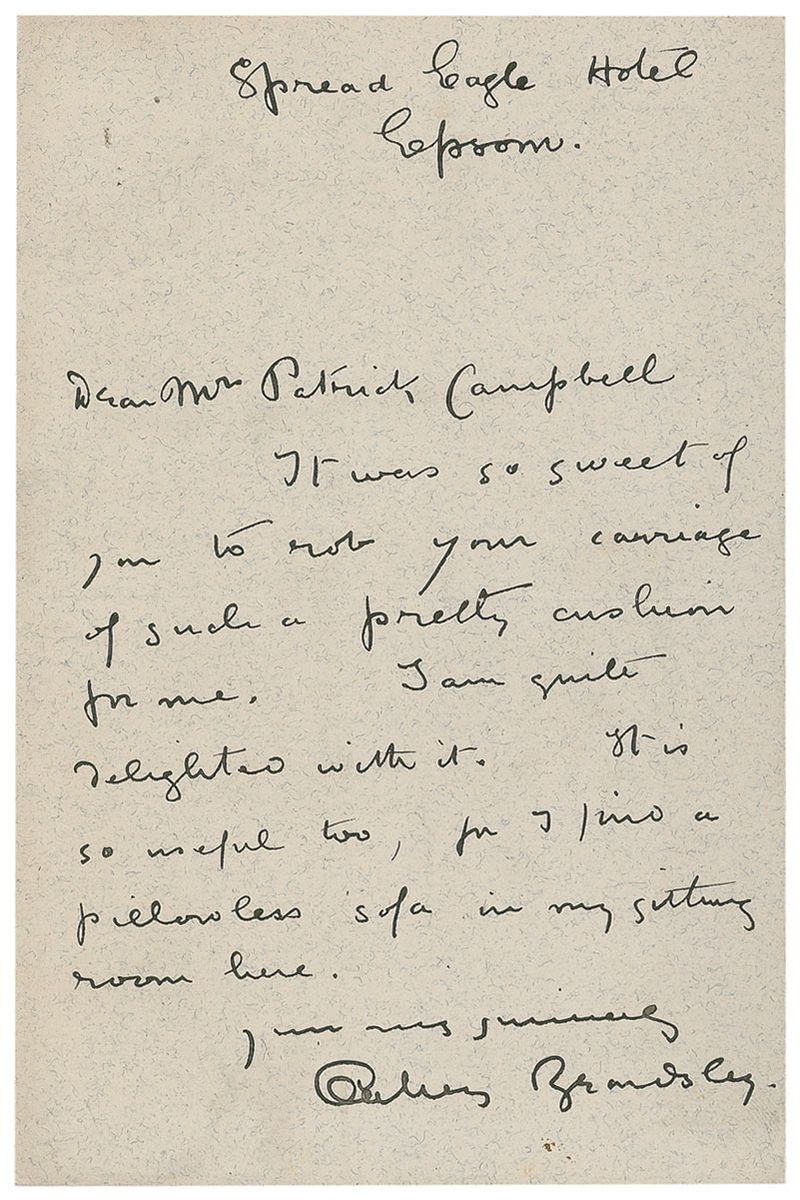 Spread Eagle Hotel
Epsom.
Dear Mrs Patrick Campbell
It was so sweet of
you to rob your carriage
of such a pretty cushion
for me. I am quite
delighted with it. It is
so useful too, for I find a
pillowless sofa in my sitting
room here.
Yours very sincerely
Aubrey Beardsley.